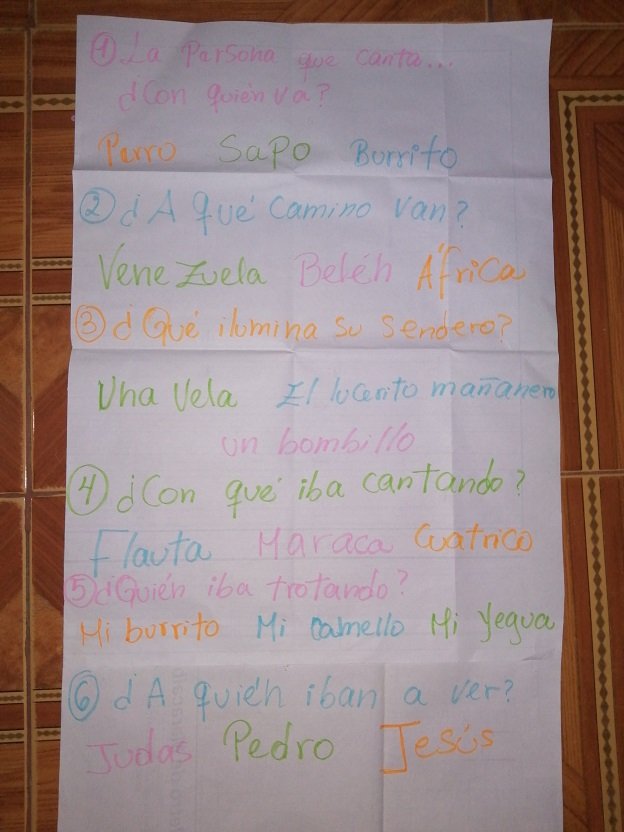 ① La Persona que canta...
¿Con quién va?
Perro Sapo Burrito
② ¿A qué Camino van?
Venezuela Belén África
③ ¿Qué ilumina su sendero?
Una Vela El lucerito mañanero
un bombillo
④ ¿Con qué iba cantando?
Flauta Maraca Cuatrico
⑤ ¿Quién iba trotando?
Mi burrito Mi camello Mi Yegua
⑥ ¿A quién iban a ver?
Judas Pedro Jesús